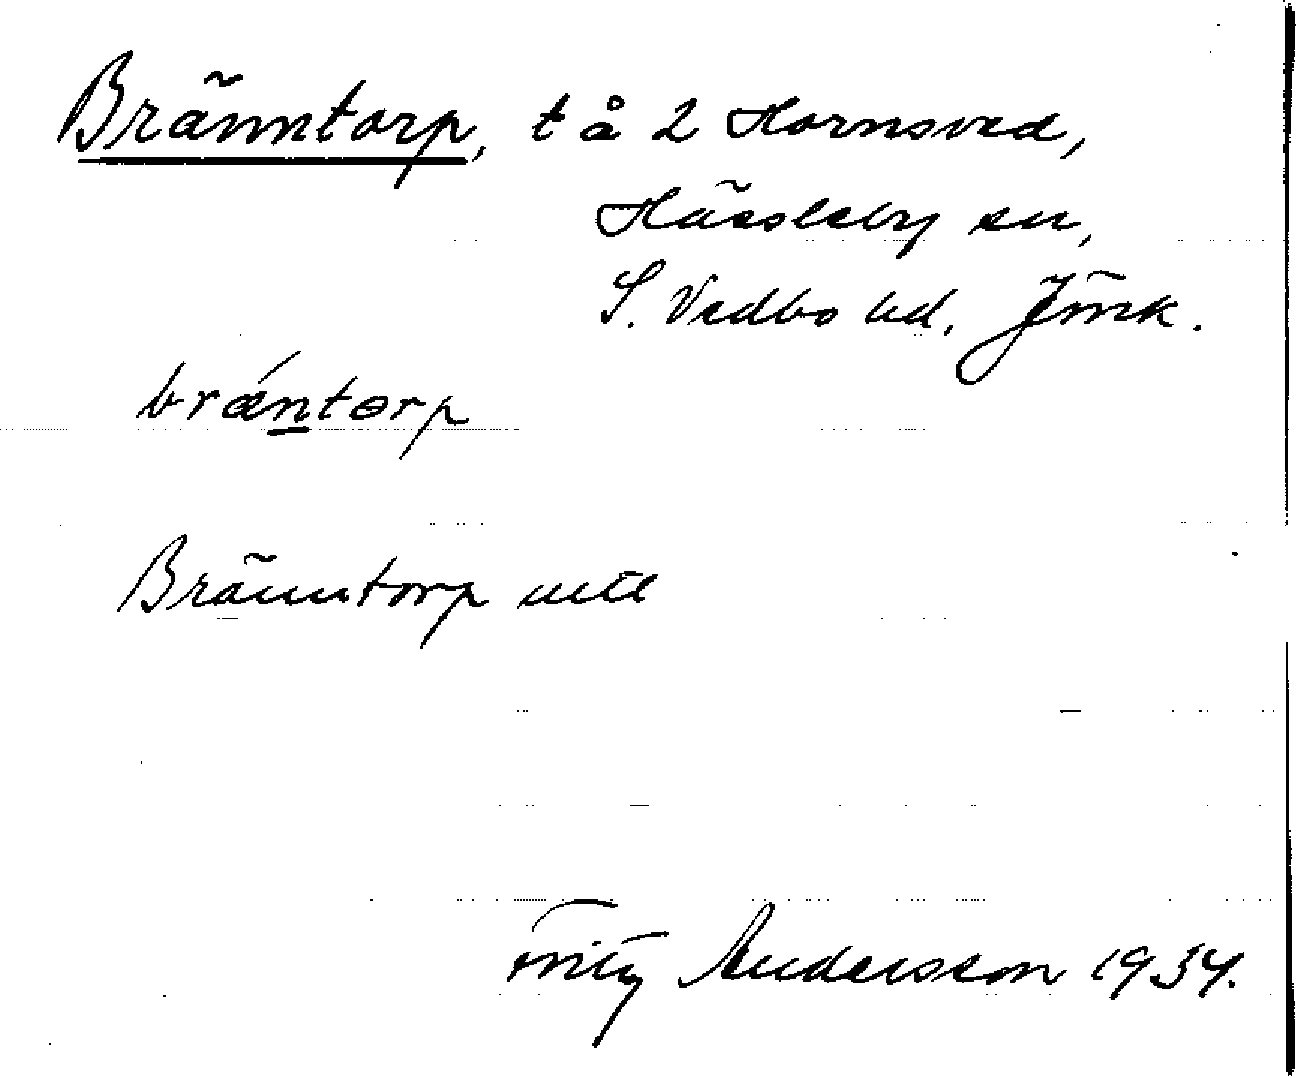 Bränntorp, t å 2 Hornsved,
Hässleby sn,
S. Vedbo hd, Jönk.
bræ´ntorp
Bränntorp
Fritz Andersson 1934.